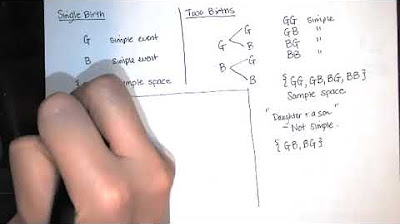 Single Birth
G simple event
B simple event
{ sample space
Two Births
G
G
B
G
B
B
GG simple
GB "
BG "
BB "
{GG, GB, BG, BB}
Sample space
"Daughter + a son"
- Not simple.
{GB, BG}